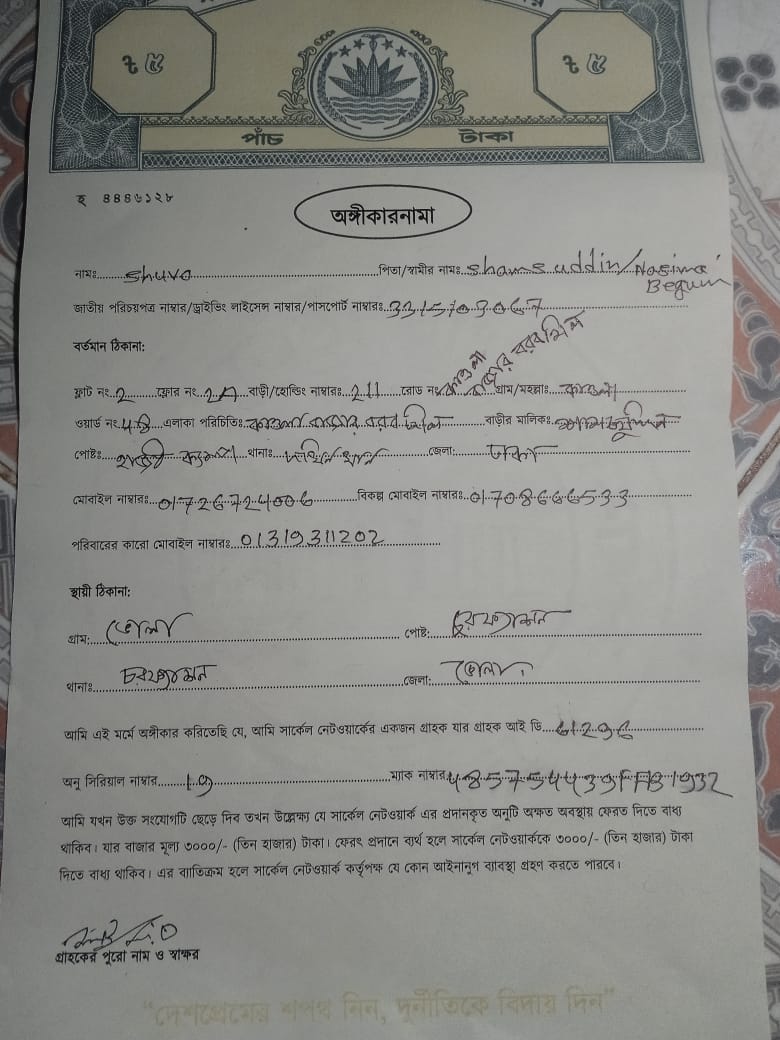 ৳ ৫ ৳ ৫
পাঁচ টাকা
হ ৪৪৪৬১২৮
অঙ্গীকারনামা
নামঃ shuvo পিতা/স্বামীর নামঃ shamsuddin/Nasima Begum
জাতীয় পরিচয়পত্র নাম্বার/ড্রাইভিং লাইসেন্স নাম্বার/পাসপোর্ট নাম্বারঃ 3315703067
বর্তমান ঠিকানা:
ফ্লাট নং 2 ফ্লোর নং 2A বাড়ী/হোল্ডিং নাম্বারঃ 211 রোড নং কাওলা বাজার বরফমিল গ্রাম/মহল্লাঃ কাওলা
ওয়ার্ড নং এলাকা পরিচিতিঃ কাওলা বাজার বরফ মিল বাড়ীর মালিকঃ
পোষ্টঃ থানাঃ দক্ষিনখান জেলা: ঢাকা
মোবাইল নাম্বারঃ 01726724006 বিকল্প মোবাইল নাম্বারঃ 01708666533
পরিবারের কারো মোবাইল নাম্বারঃ 01319311202
স্থায়ী ঠিকানা:
গ্রাম: ভোলা পোষ্ট:
থানাঃ চরফ্যাশন জেলা: ভোলা
আমি এই মর্মে অঙ্গীকার করিতেছি যে, আমি সার্কেল নেটওয়ার্কের একজন গ্রাহক যার গ্রাহক আই ডি 61296
অনু সিরিয়াল নাম্বার 19 ম্যাক নাম্বার 485754439FFB1932
আমি যখন উক্ত সংযোগটি ছেড়ে দিব তখন উল্লেক্ষ্য যে সার্কেল নেটওয়ার্ক এর প্রদানকৃত অনুটি অক্ষত অবস্থায় ফেরত দিতে বাধ্য
থাকিব। যার বাজার মূল্য ৩০০০/- (তিন হাজার) টাকা। ফেরৎ প্রদানে ব্যর্থ হলে সার্কেল নেটওয়ার্ককে ৩০০০/- (তিন হাজার) টাকা
দিতে বাধ্য থাকিব। এর ব্যতিক্রম হলে সার্কেল নেটওয়ার্ক কর্তৃপক্ষ যে কোন আইনানুগ ব্যাবস্থা গ্রহণ করতে পারবে।
গ্রাহকের পুরো নাম ও স্বাক্ষর
“দেশপ্রেমের শপথ নিন, দুর্নীতিকে বিদায় দিন”